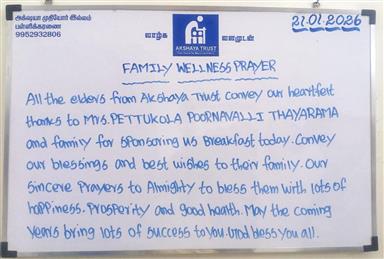 அக்‌ஷயா முதியோர் இல்லம்
பள்ளிக்கரணை
9952932806
வாழ்க வளமுடன்
AKSHAYA TRUST
21.01.2026
FAMILY WELLNESS PRAYER
All the elders from Akshaya Trust convey our heartfelt
thanks to Mrs. PETTUKOLA POORNAVALLI THAYARAMA
and family for sponsoring us Breakfast today. Convey
our blessings and best wishes to their family. Our
Sincere Prayers to Almighty to bless them with lots of
happiness. Prosperity and good health. May the coming
Years bring lots of success to you. God bless you all.